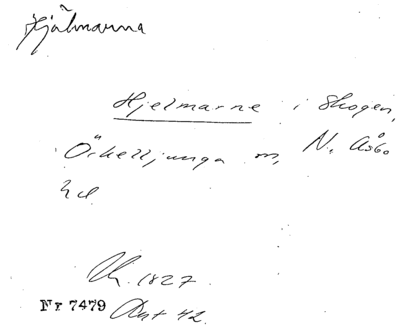 Hjälmarna
Hjelmarne i Skogen,
Örkelljunga sn, N. Åsbo
hd
Kh. 1827.
Nr 7479 Ant 42.